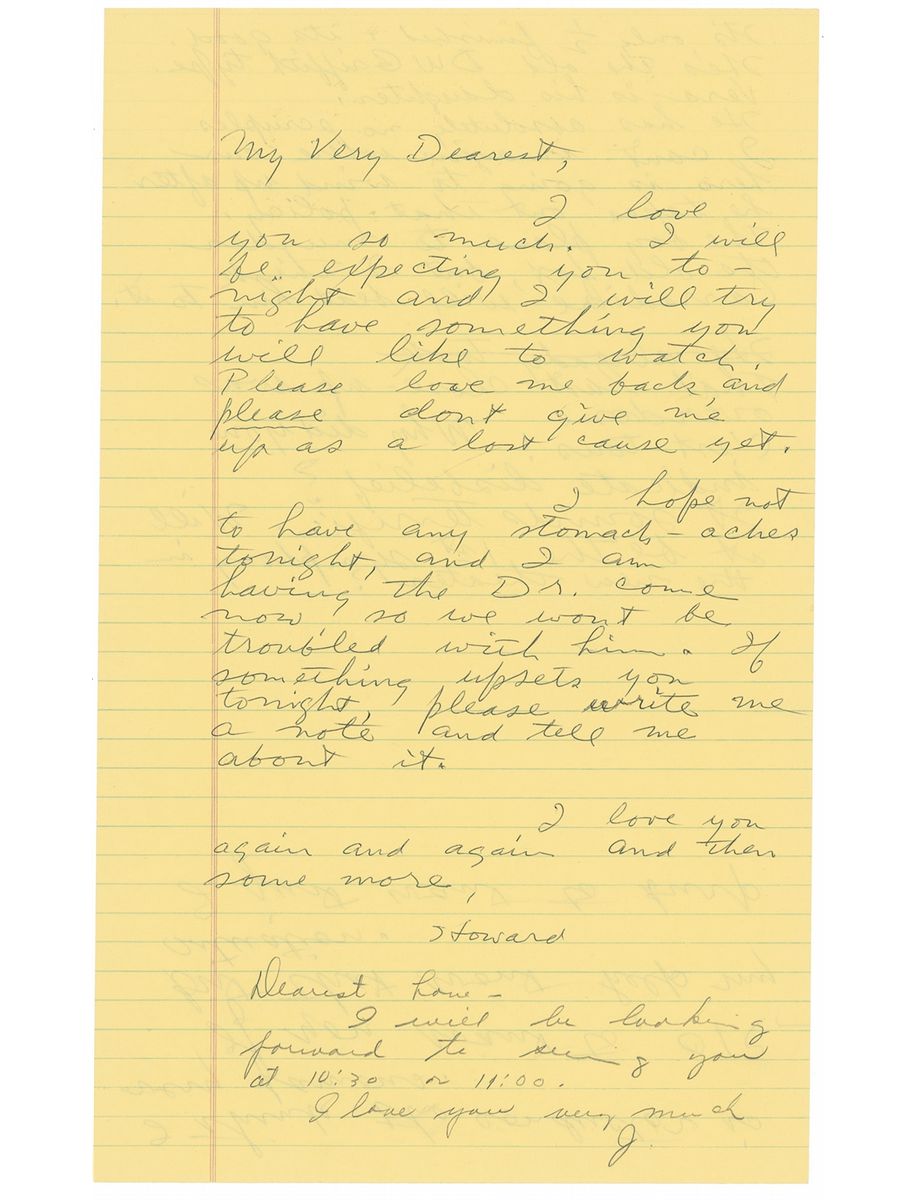 My Very Dearest,
I love
you so much. I will
be expecting you to-
night and I will try
to have something you
will like to watch.
Please love me back and
please don't give me
up as a lost cause yet.
I hope not
to have any stomach-aches
tonight, and I am
having the Dr. come
now, so we wont be
troubled with him. If
something upsets you
tonight, please write me
a note and tell me
about it.
I love you
again and again and then
some more,
Howard
Dearest love -
I will be looking
forward to seeing you
at 10:30 or 11:00.
I love you very much
J.